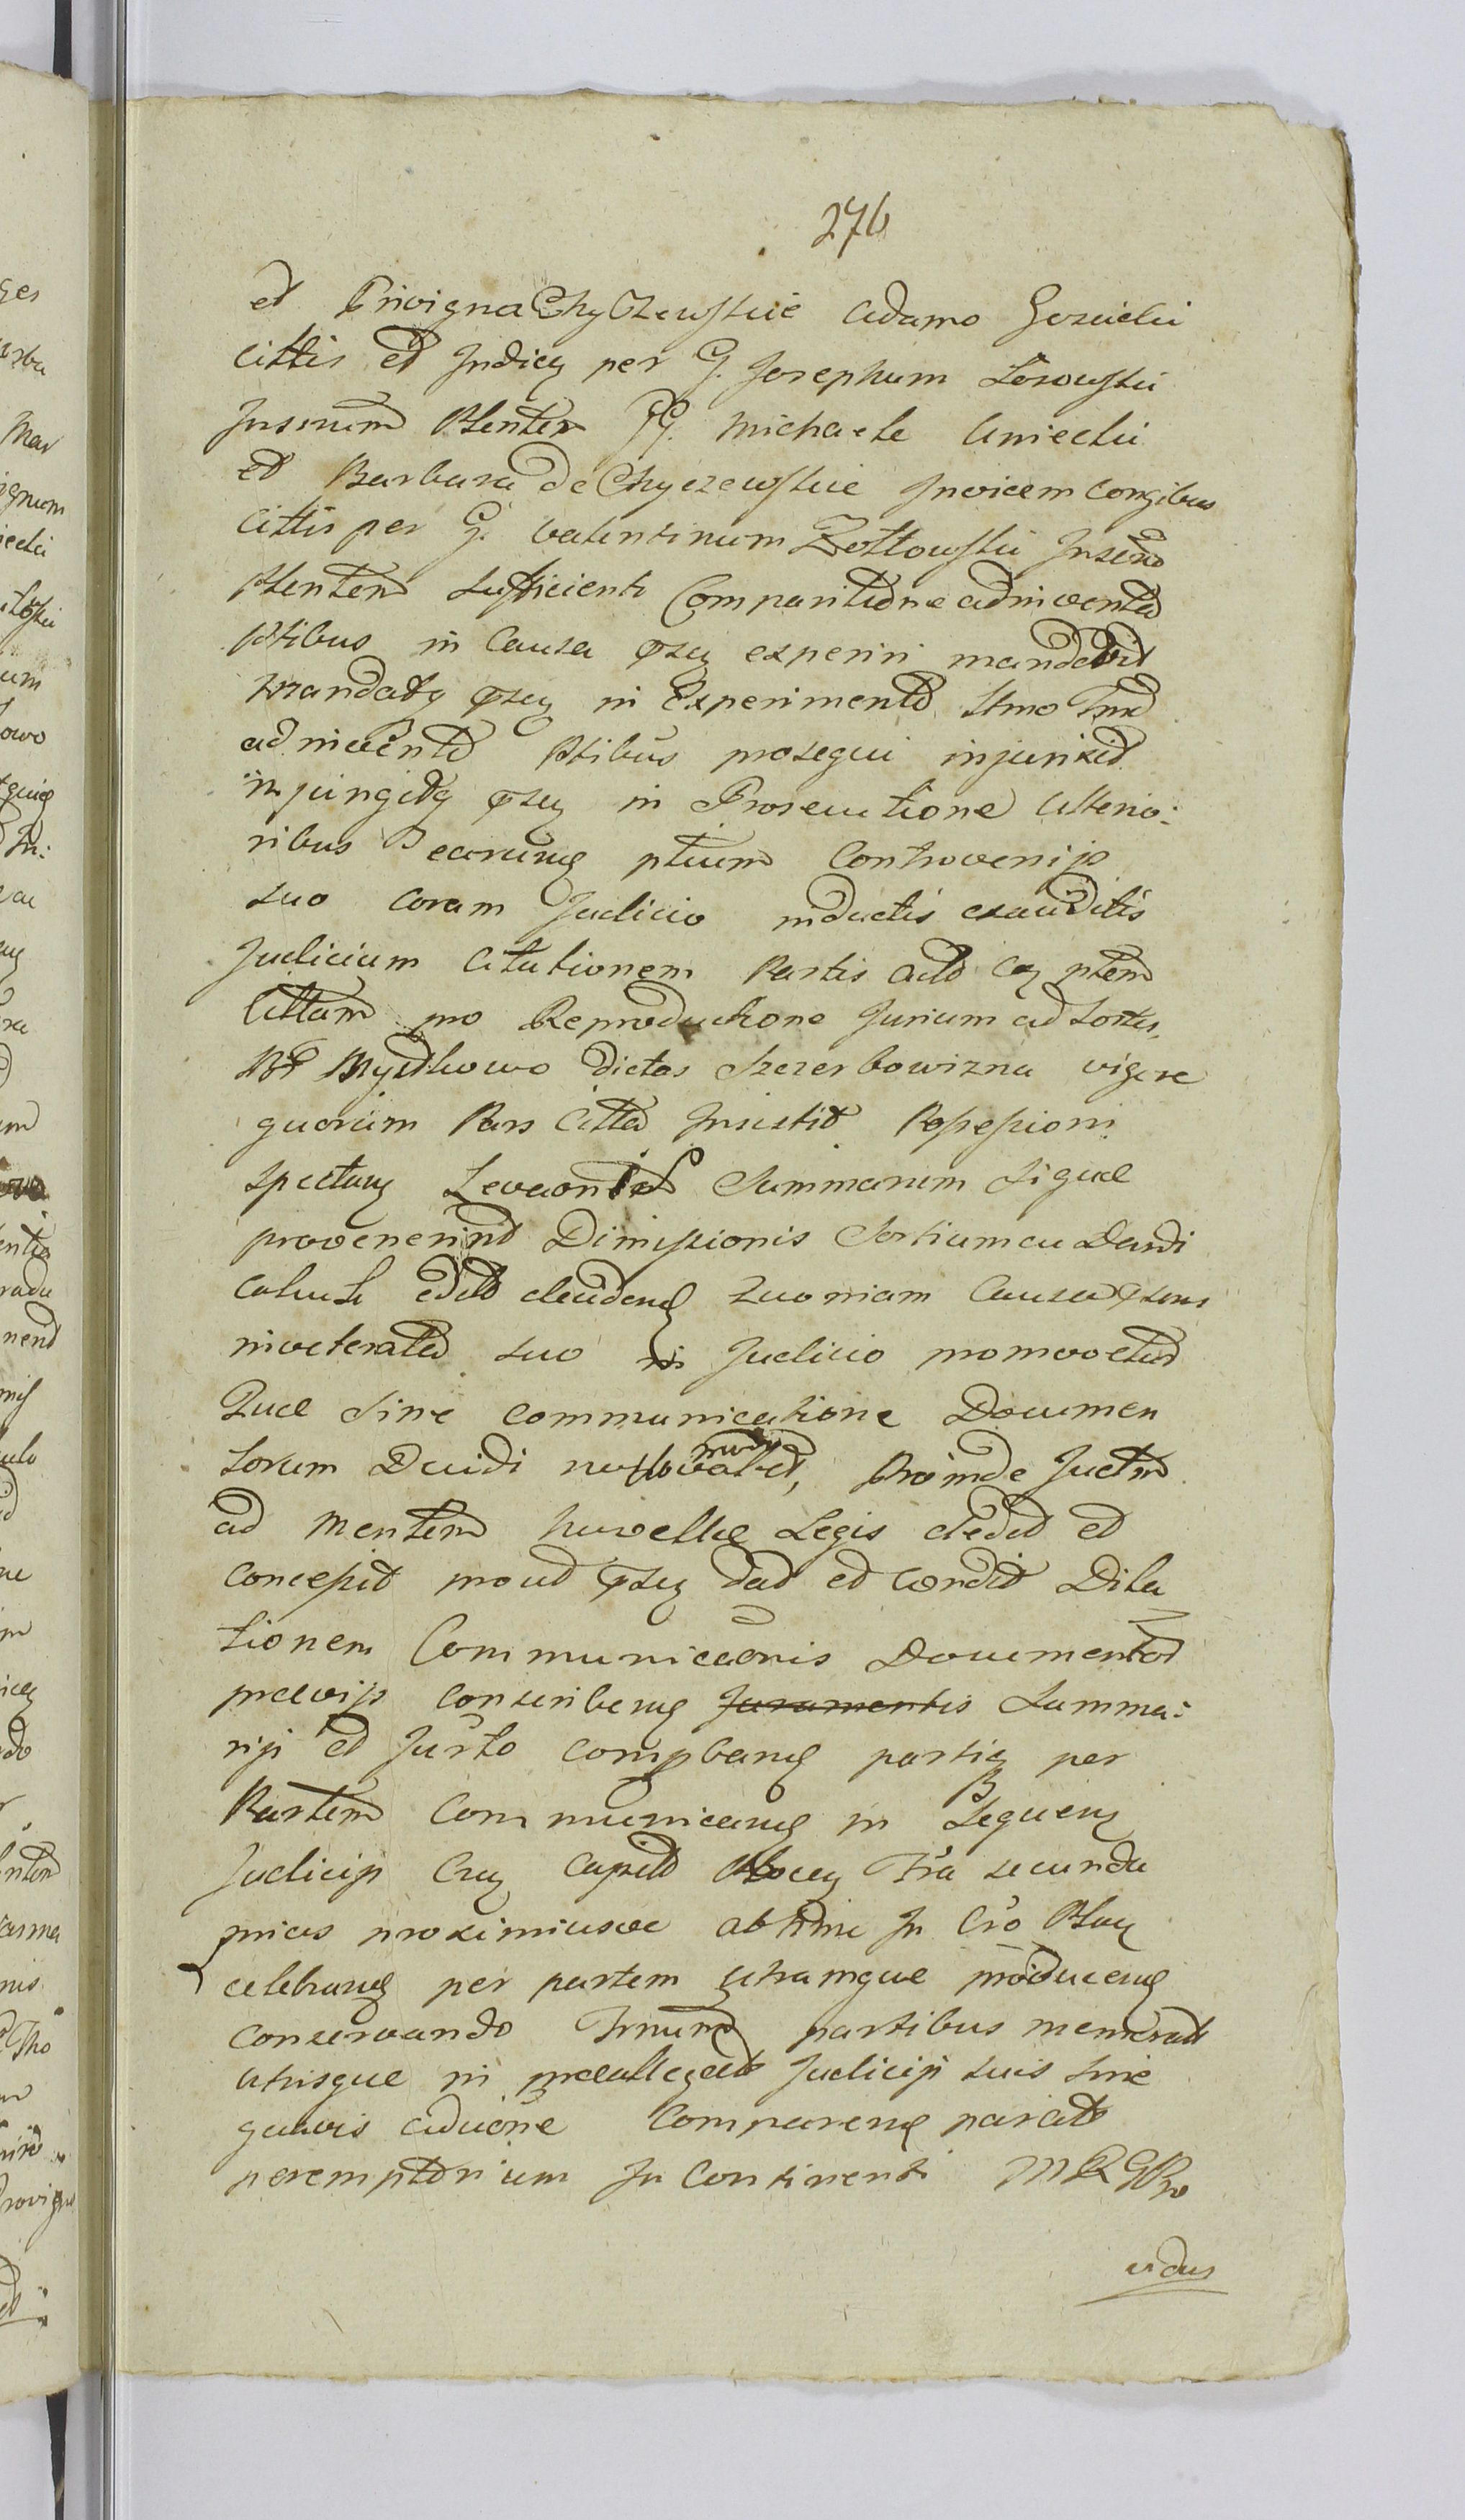 276
et Privigna Chyczewskie Adamo Gorucki
Cittis et Judicy per G. Josephum Losowski
Insrium Plenten GG. Michaele Uniecki
et Barbara de Chyczewskie Invicem Congibus
Cittis per G. Valentinum Zołtowski Insrio
Plentem Sufficienti Comparitione adinventa
Ptibus in Causa psny experiri mandavit
Mandatq psny in Experimento Stmo Tnio
adinvento Ptibus prosequi injunxit
injungitq psny in Prosecutione Ulterio:
ribus earumq ptium Controversijs
suo coram Judicio inductis exauditis
Judicium Citationem Partis Act ex ptem
Cittam pro Reproductione Jurium ad Sortes
Bt Mystkowo dictas Szczerbowizna vigore
quorum Pars Citta Insistit Possessioni
Spectany Levaont Summarum Siquae
provenerint Dimissionis Sortium eu dandi
Calculi edit cludend Quoniam Causa psens
inveterata suo in Judicio promovetur
Quae Sine Communicatione Documen
torum Decidi nullo modo valet, Proinde Juctm
ad Mentem Novellae Legis dedit et
concepit prout psny dat et condit Dila
tionem Communicaonis Documentor
praevijs conscribend Juramentis Summa:
rijs et Justo compband partiq per
Partem Communicand in Sequeny
Judicijs Cuy Capit Plocey Tra secunda
prius proximiusve abhinc In Cro Play
celebrand per partem utramque producend
conservando Trnum partibus memorat
utrisque in praeallegat Judicijs suis sine
quavis aducone Comparend parat
peremptorium In Continenti MRGPro
vidus